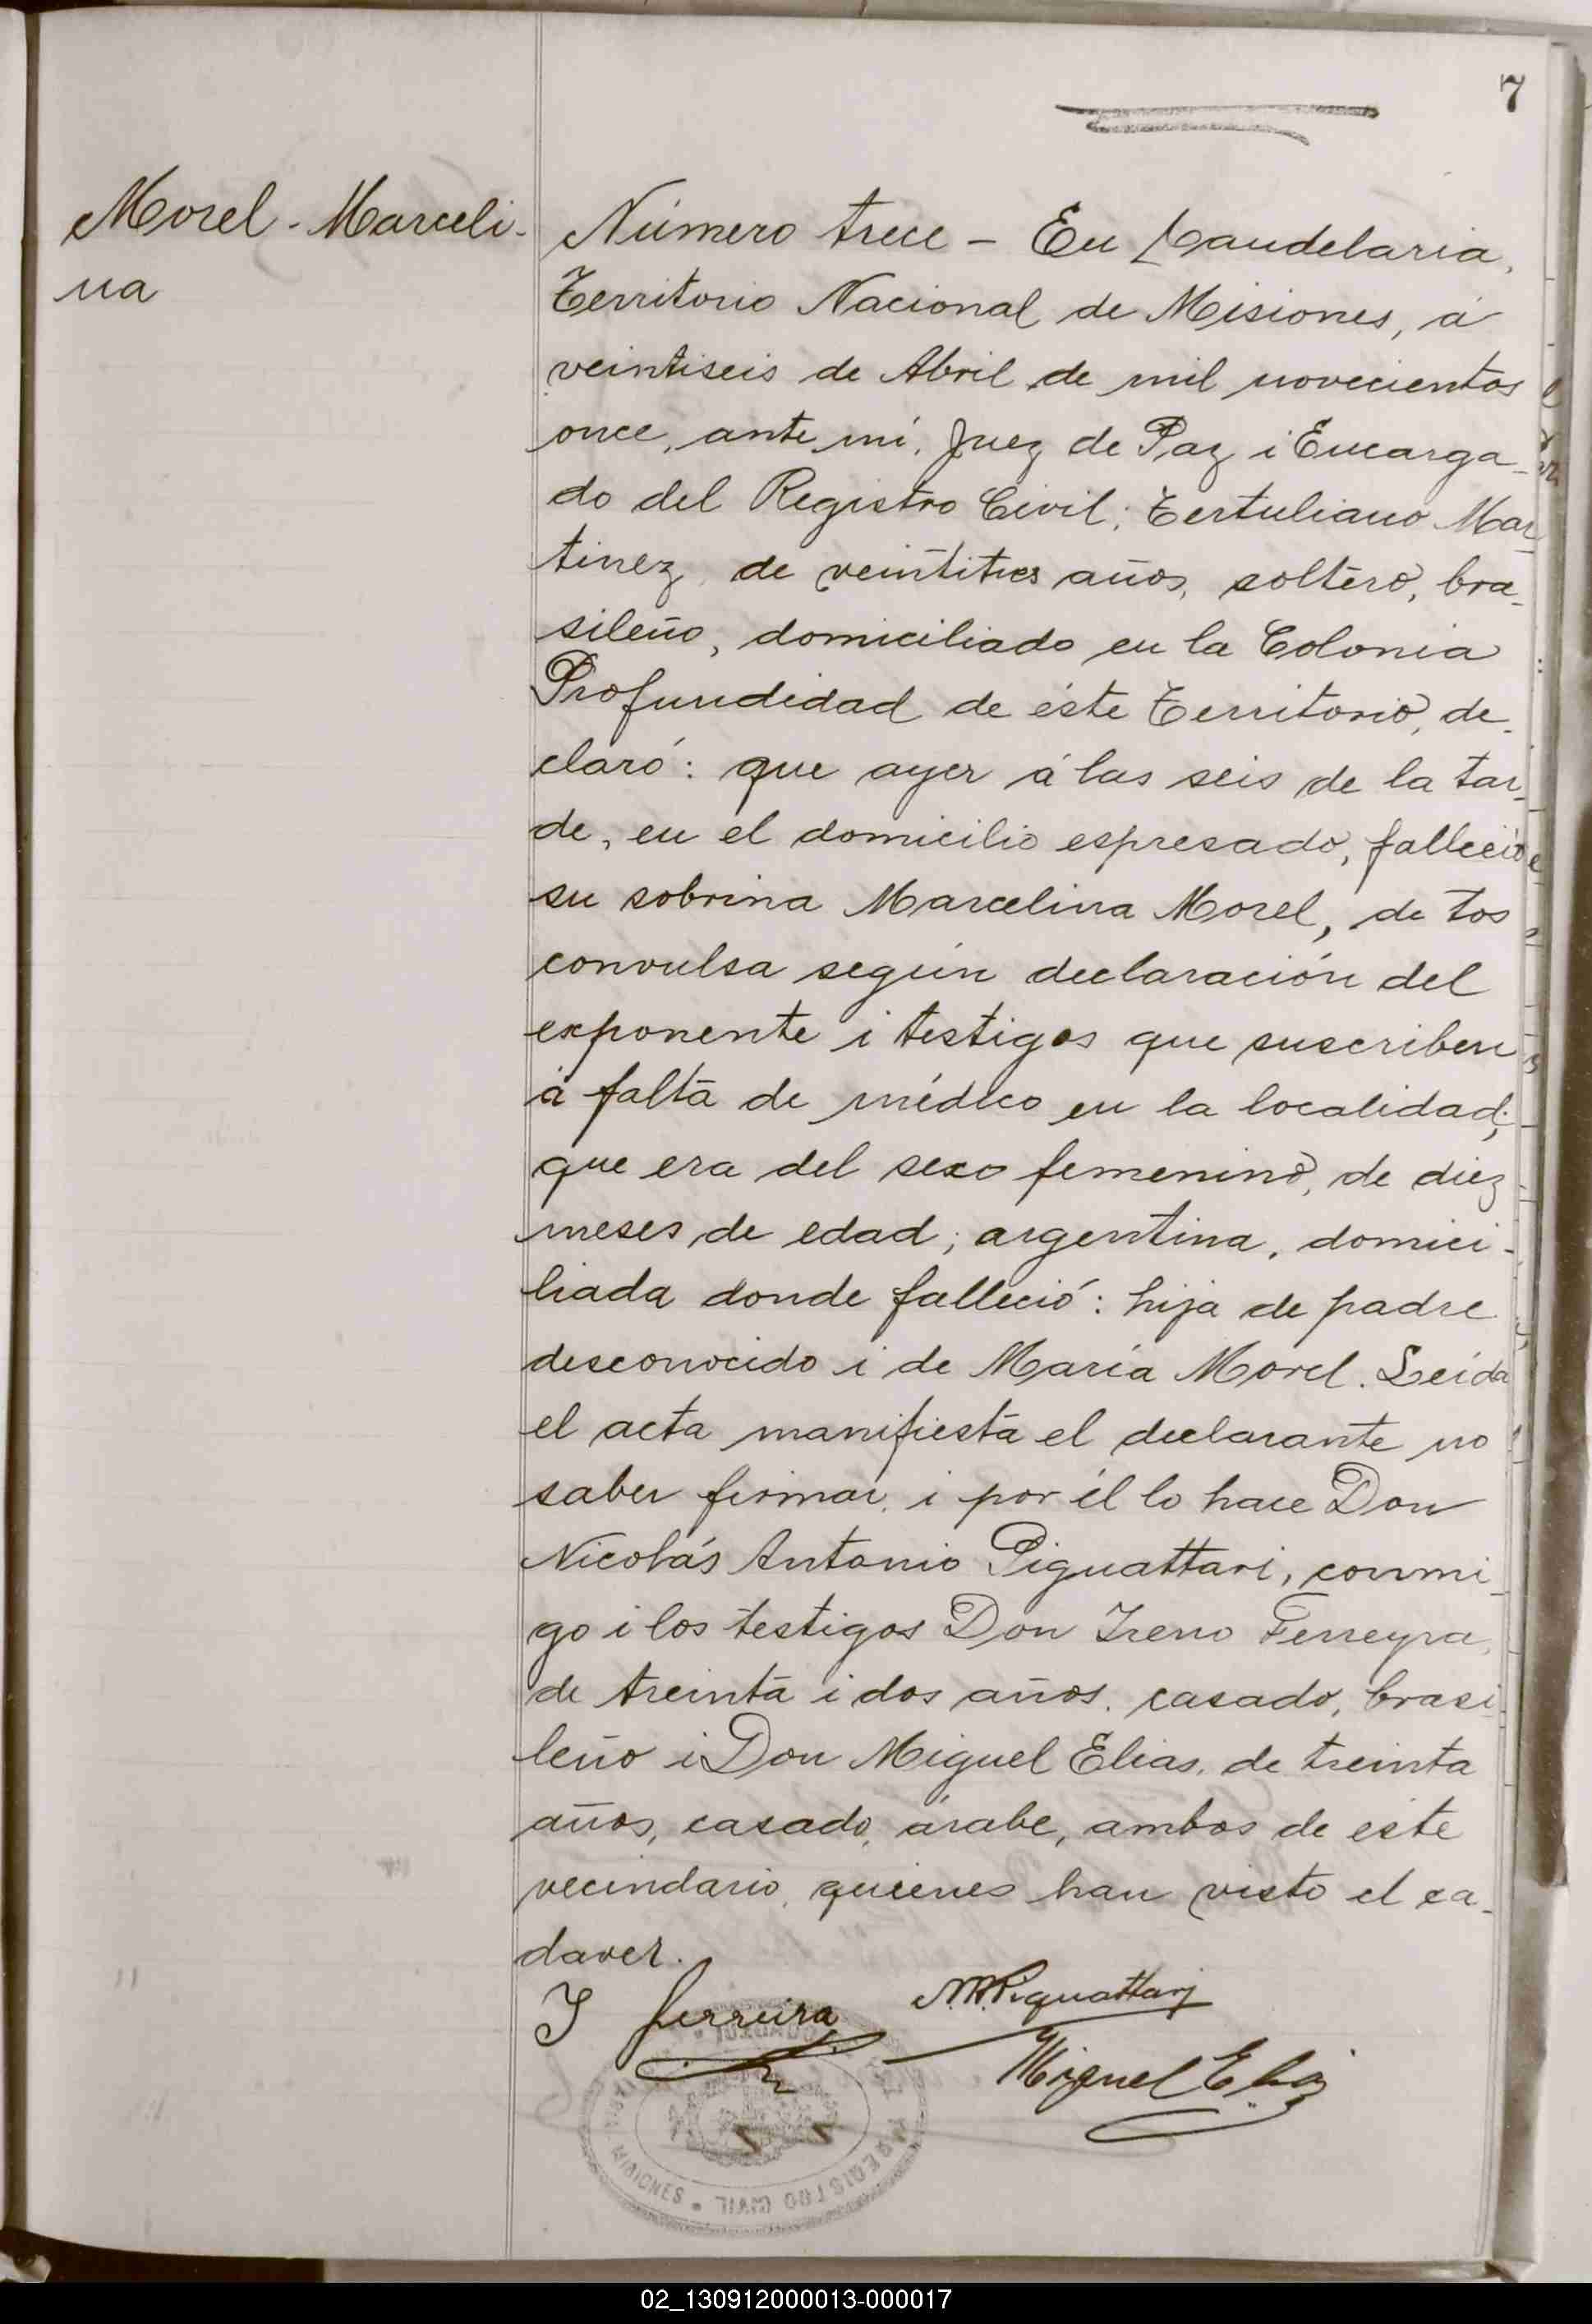 7
Morel - Marceli-
na
Número trece - En Candelaria,
Territorio Nacional de Misiones, á
veintiseis de Abril de mil novecientos
once, ante mí, Juez de Paz i Encarga-
do del Registro Civil; Tertuliano Mar-
tinez, de veintitres años, soltero, bra-
sileño, domiciliado en la Colonia
Profundidad de éste Territorio, de-
claró: que ayer á las seis de la tar-
de, en el domicilio espresado, falleció
su sobrina Marcelina Morel, de tos
convulsa según declaración del
exponente i testigos que suscriben
á falta de médico en la localidad;
que era del sexo femenino, de diez
meses de edad; argentina, domici-
liada donde falleció: hija de padre
desconocido i de María Morel. Leida
el acta manifiesta el declarante no
saber firmar, i por él lo hace Don
Nicolás Antonio Piguattari, conmi-
go i los testigos Don Ireno Ferreyra,
de treinta i dos años, casado, brasi-
leño i Don Miguel Elias, de treinta
años, casado, árabe, ambos de este
vecindario, quienes han visto el ca-
daver.
I Ferreira
N.A. Piguattari
Miguel Elias
MISIONES • REGISTRO CIVIL
02_130912000013-000017